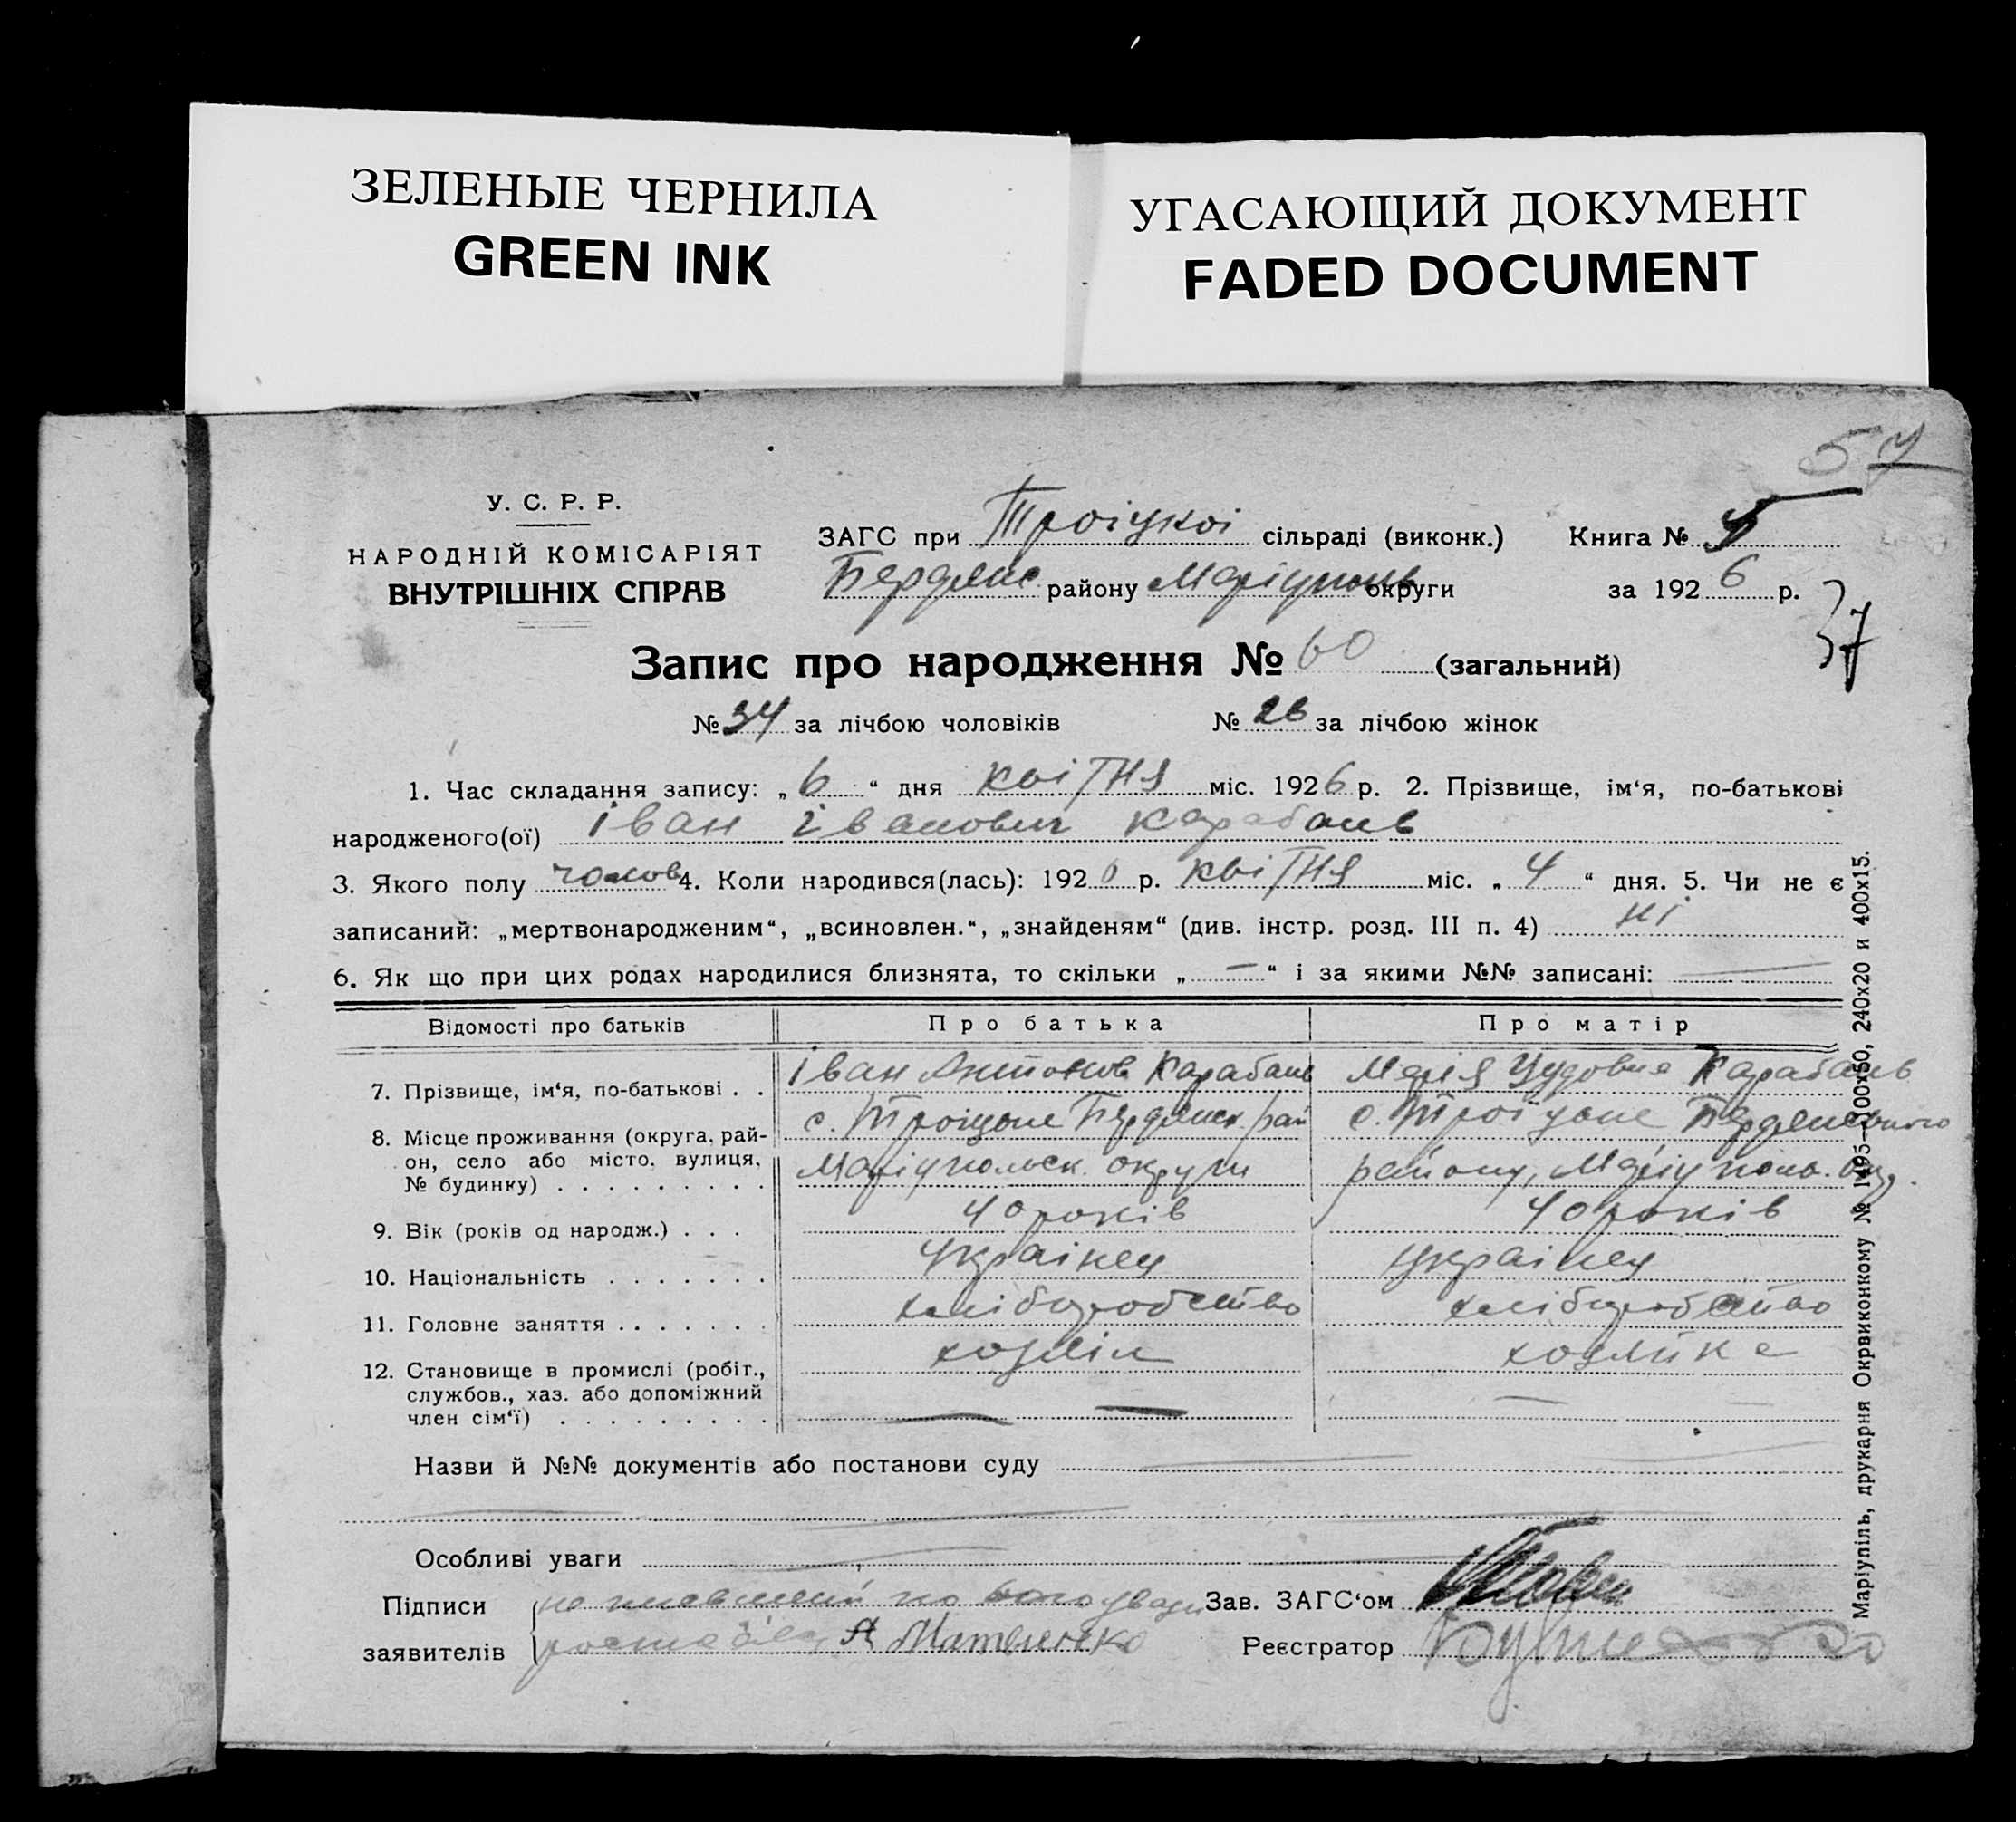 ЗЕЛЕНЫЕ ЧЕРНИЛА
GREEN INK
УГАСАЮЩИЙ ДОКУМЕНТ
FADED DOCUMENT
57
У. С. Р. Р.
НАРОДНІЙ КОМІСАРІЯТ
ВНУТРІШНІХ СПРАВ
ЗАГС при Троіцкоі сільраді (виконк.) Книга №
Бердянс району Маріуполь округи за 1926 р.
37
Запис про народження № 60 (загальний)
№ 34 за лічбою чоловіків № 26 за лічбою жінок
1. Час складання запису: „6“ дня квітня міс. 1926 р. 2. Прізвище, ім‘я, по-батькові
народженого(ої) іван іванович Карабань
3. Якого полу чолов 4. Коли народився(лась): 1926 р. квітня міс. „4“ дня. 5. Чи не є
записаний: „мертвонародженим“, „всиновлен.“, „знайденям“ (див. інстр. розд. III п. 4) ні
6. Як що при цих родах народилися близнята, то скільки „—“ і за якими №№ записані:
Відомості про батьків Про батька Про матір
7. Прізвище, ім‘я, по-батькові . . іван Антонов Карабань Марія Карабань
8. Місце проживання (округа, рай- с. Троіцьке Бердянск. рай с. Троїцьке Бердянського
он, село або місто, вулиця, Маріупольск. округи району, Маріуполь. окр.
№ будинку) . . . . . . . . .
9. Вік (років од народж.) . . . 40 років 40 років
10. Національність . . . . . . . українец українец
11. Головне заняття . . . . . . . хліборобство хліборобство
12. Становище в промислі (робіт., хозяін хозяйка
службов., хаз. або допоміжний
член сім‘ї) . . . . . . . . . — — — —
Назви й №№ документів або постанови суду
Особливі уваги
Підписи Зав. ЗАГС‘ом
заявителів А Мателенко Реєстратор
Маріупіль, друкарня Окрвиконкому № 1495—100х50, 240х20 и 400х15.